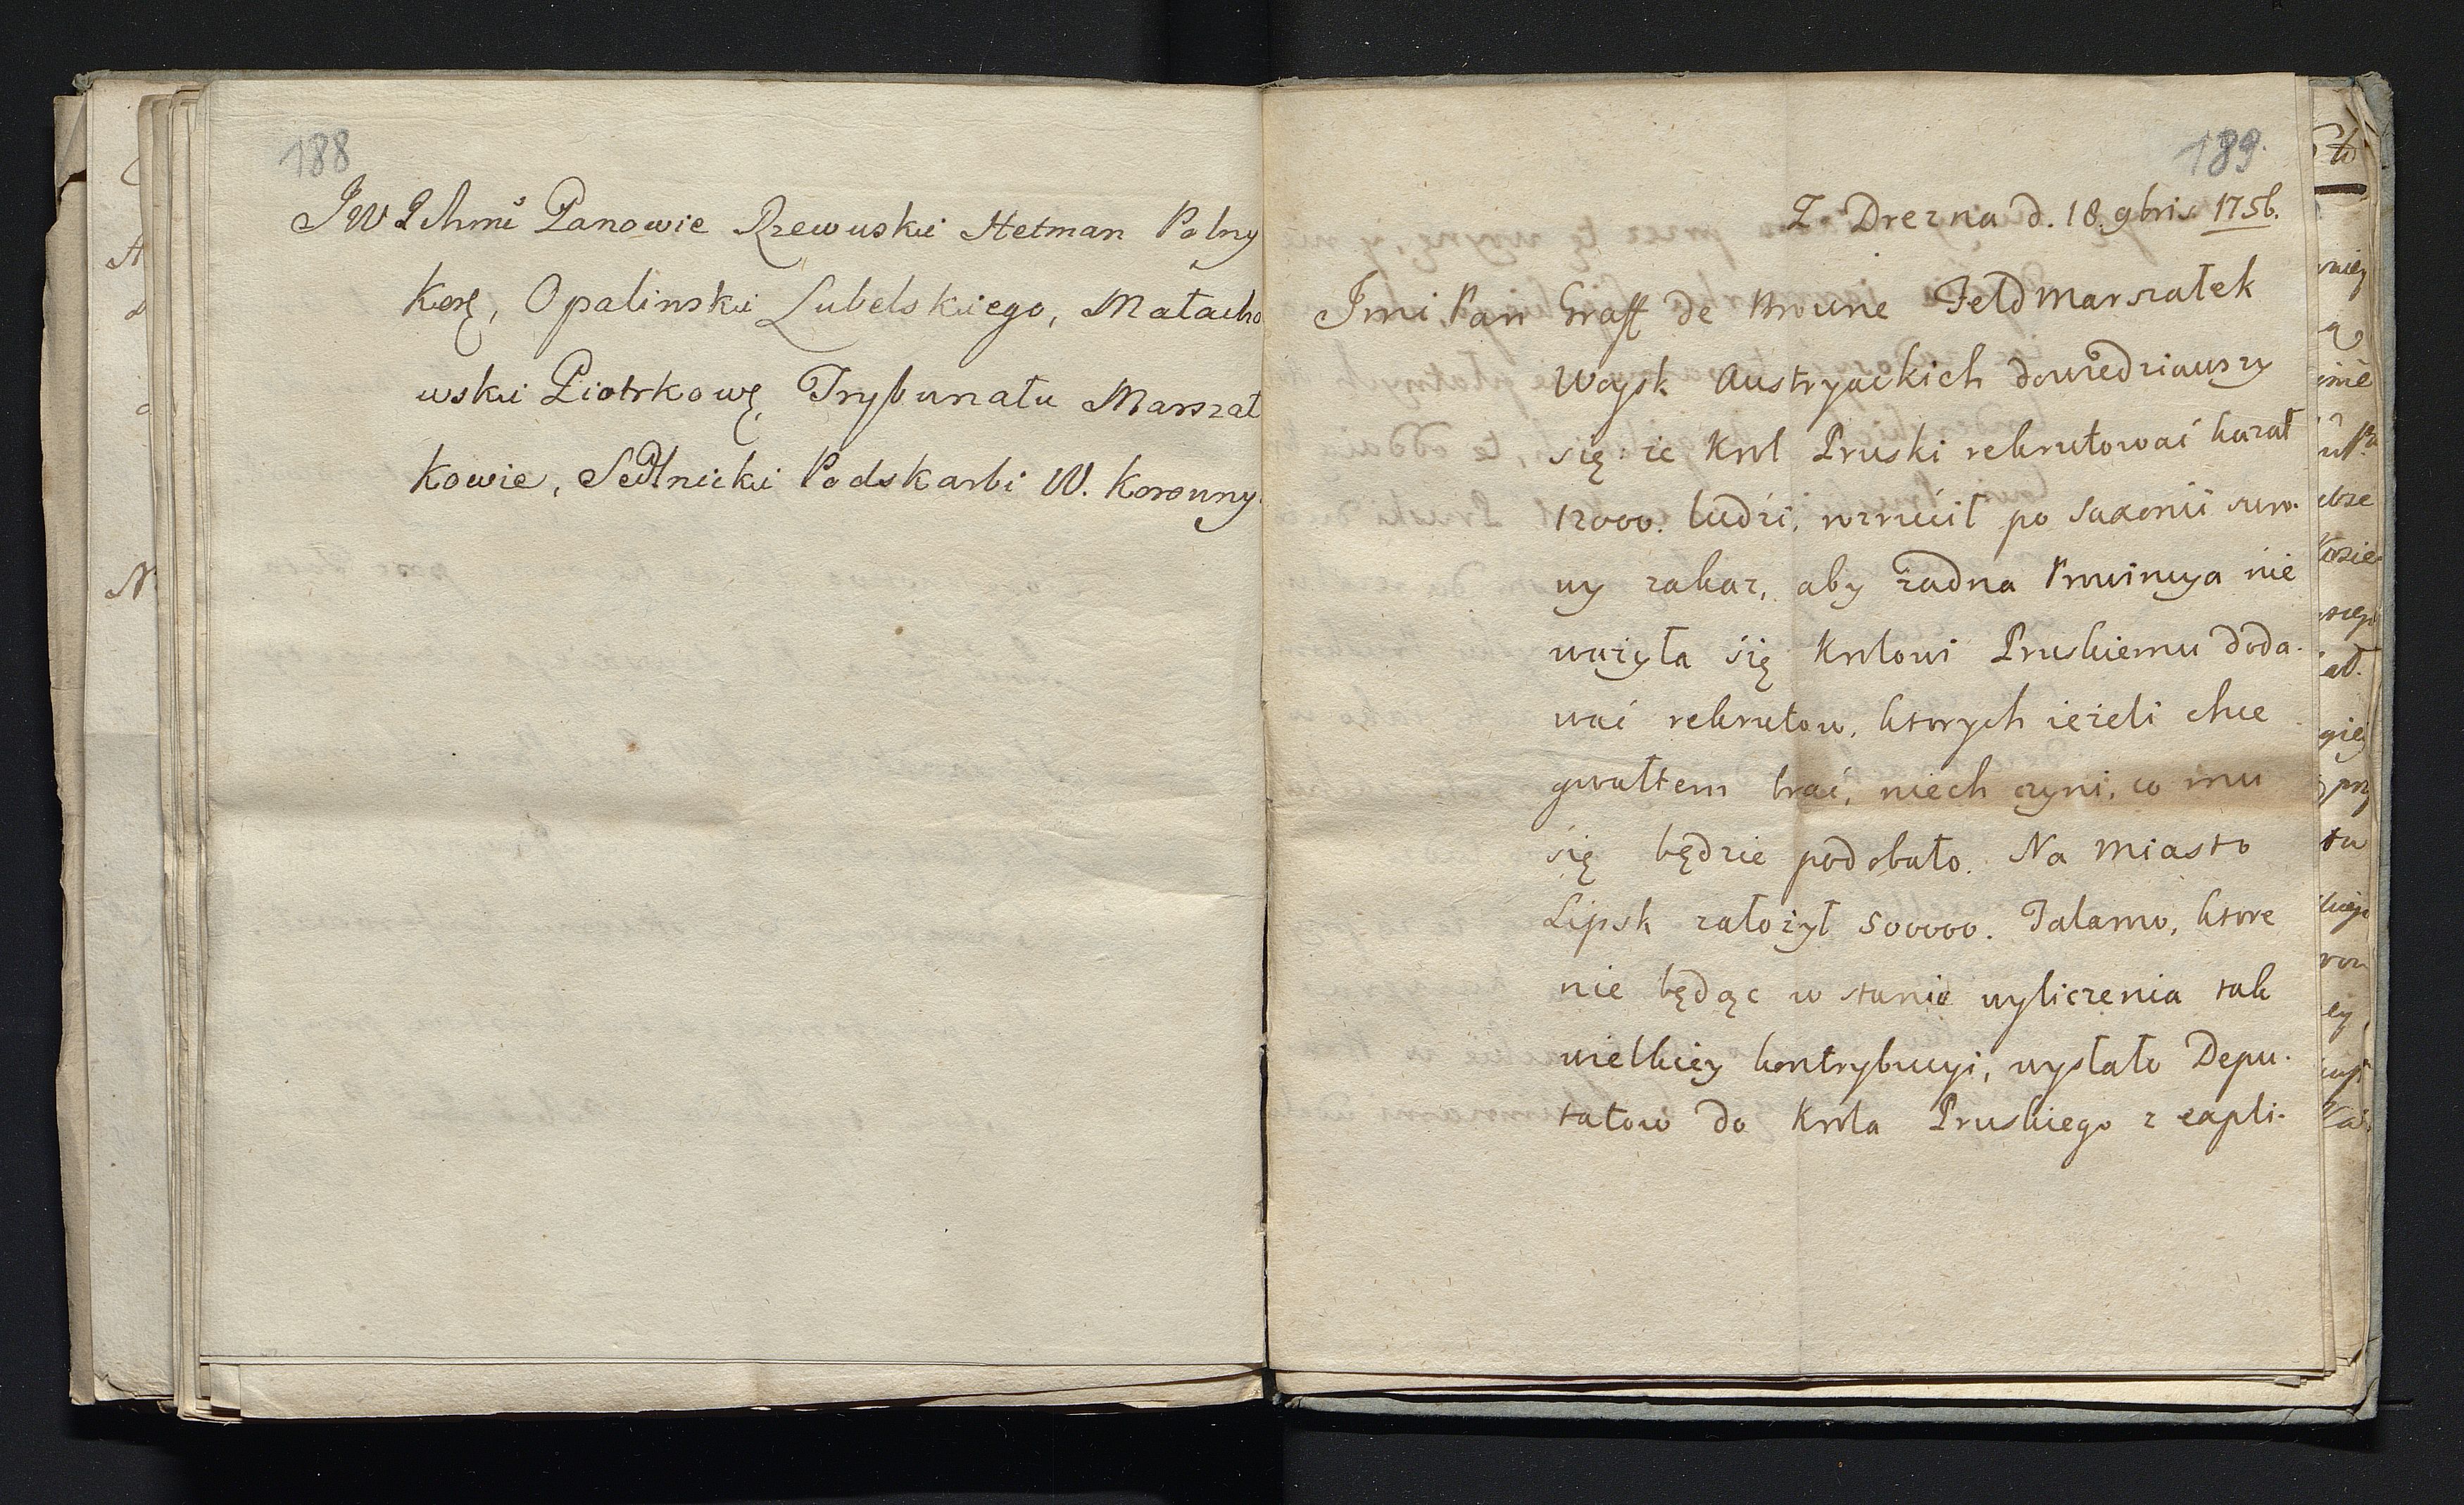 188
JW Ichmć Panowie Rzewuski Hetman Polny
Korę, Opalinski Lubelskiego, Małacho
wski Piotrkowę Trybunału Marszał
Kowie, Sedlnicki Podskarbi W. Koronny.
189.
Z Drezna d. 18. 9bris 1756.
Jmć Pan Graff de Broune Feldmarszałek
Woysk Austryackich dowiedziawszy
się że Krol Pruski rekrutować kazał
12000. ludzi, rozrucił po Saxonii suro-
wy zakaz, aby żadna Prowincya nie
ważyła się Krolowi Pruskiemu doda-
wać rekrutow, ktorych ieżeli chce
gwałtem brać, niech czyni, co mu
się będzie podobało. Na Miasto
Lipsk założył 500000. Talarow, ktore
nie będąc w stanie wyliczenia tak
wielkiey kontrybucyi, wysłało Depu-
tatow do Krola Pruskiego z expli-